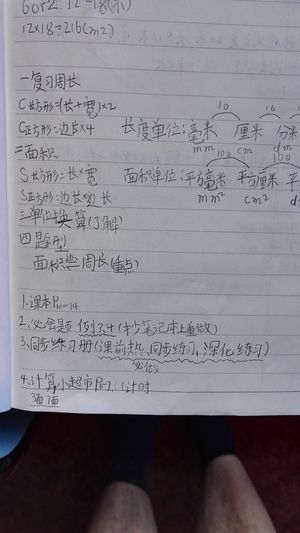 60÷2
12×18=216(m2)
一复习周长
C长方形=(长+宽)×2
C正方形=边长×4
长度单位:毫米 厘米 分米
10 10
mm cm dm
二面积
S长方形=长×宽
面积单位:平方毫米 平方厘米 平
100 100
mm² cm² d
S正方形=边长×边长
三单位换算(了解)
四题型
面积 周长(重点)
1.课本P10-14
2.必会题 例7.4(抄笔记本上重做)
3.同步练习册(课前热、同步练习、深化练习)
必做
4.计算小超市P6-7. 计时